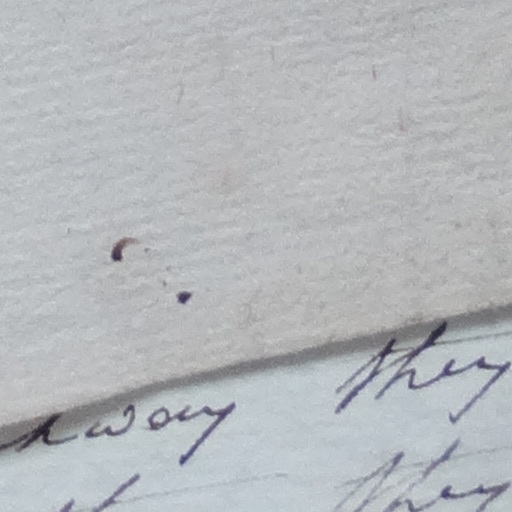 away they
they